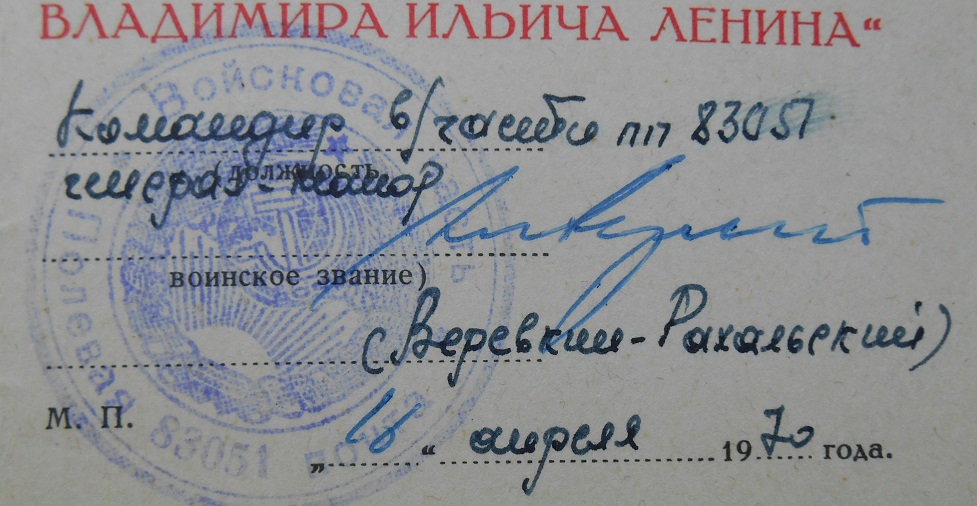 ВЛАДИМИРА ИЛЬИЧА ЛЕНИНА“
Командир в/части пп 83051
(должность,
генерал-майор
воинское звание)
(Веревкин-Рахальский)
М. П.
„ “ апреля 1970 года.
Войсковая часть
Полевая почта 83051